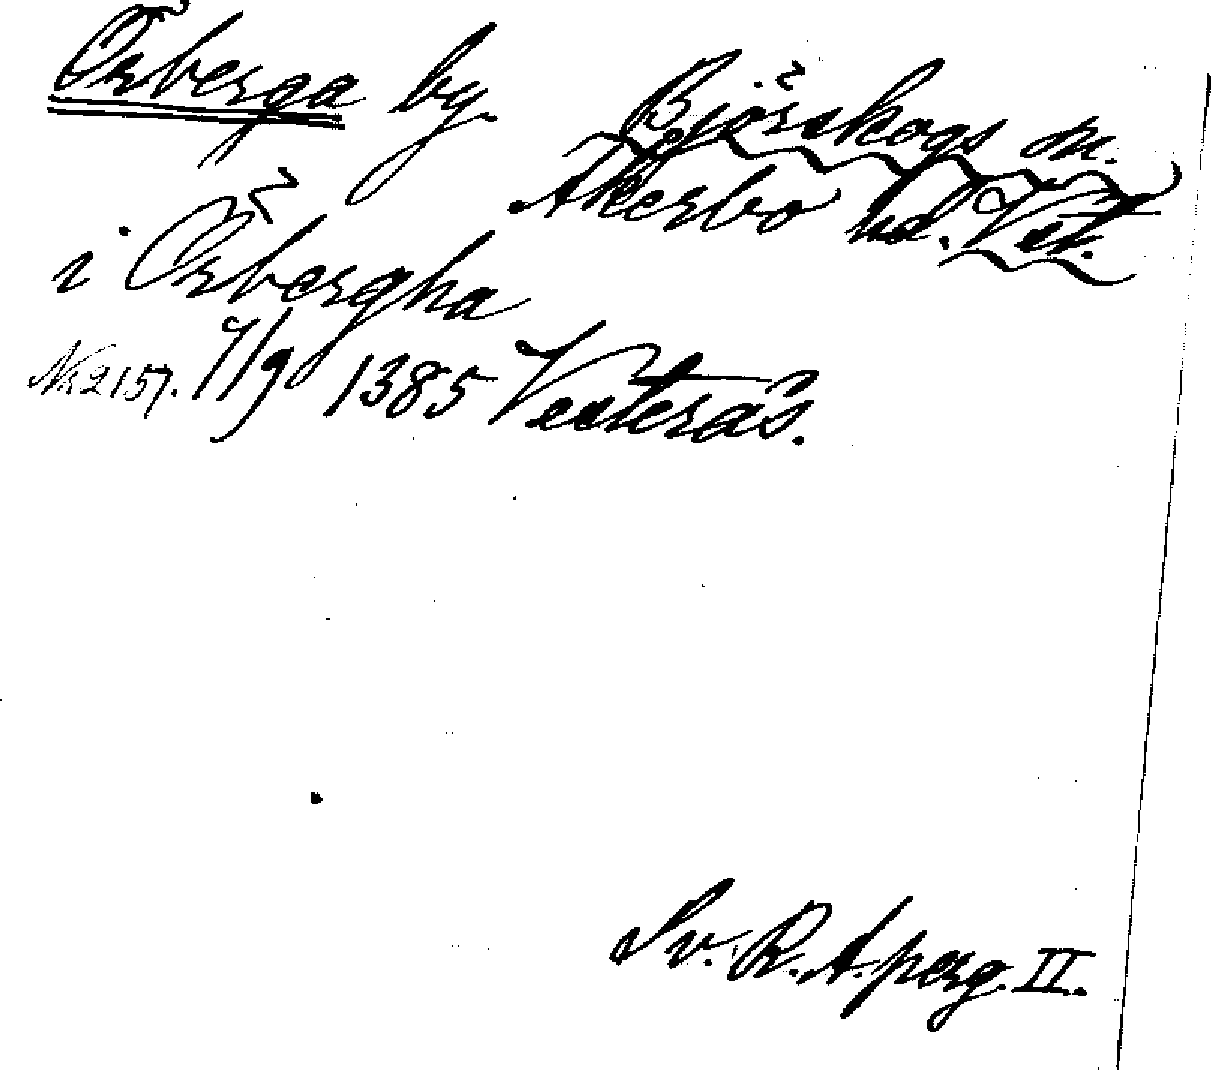 Örberga by. Björskogs sn.
Åkerbo hd. Vstm.
i Örbergha
Nr 2157. 7/9 1385 Vesterås.
Sv. R. A. perg. II.